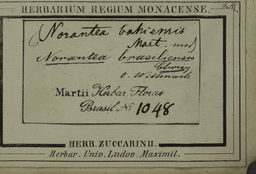 HERBARIUM REGIUM MONACENSE.
(Norantea bahiensis
Mart. msc.)
Norantea brasiliensis
Choisy
v. Wittmack
Martii Herbar. Florae
Brasil. No 1048
HERB. ZUCCARINII.
Herbar. Univ. Ludov. Maximil.